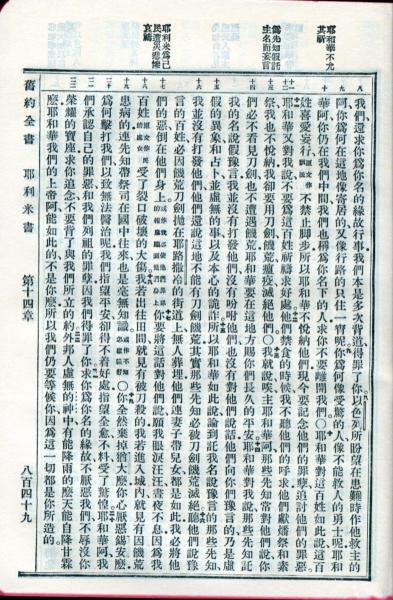 耶和華不允
其禱
爲先知假託
主名而妄言
耶利米爲己
民遭災悲慘
哀禱
我們還求你爲你名的緣故行事我們本是多次背道得罪了你以色列所盼望在患難時作他救主的
阿你爲何在這地像寄居的又像行路的只住一宵呢你爲何像受驚的人像不能救人的勇士呢耶和
華阿你仍在我們中間我們也稱爲你名下的人求你不要離開我們○耶和華對這百姓如此說這百
姓喜愛妄行不禁止腳步所以耶和華不悅納他們現今要記念他們的罪孽追討他們的罪惡
耶和華又對我說不要爲這百姓祈禱求好處他們禁食的時候我不聽他們的呼求他們獻燔祭和素
祭我也不悅納我卻要用刀劍饑荒瘟疫滅絕他們○我就說主耶和華阿那些先知常對他們說你
們必不看見刀劍也不遭遇饑荒耶和華要在這地方賜你們長久的平安耶和華對我說那些先知託
我的名說假豫言我並沒有打發他們沒有吩咐他們也沒有對他們說話他們向你們豫言的乃是虛
假的異象和占卜並虛無的事以及本心的詭詐所以耶和華如此說論到託我名說豫言的那些先知
我並沒有打發他們他們還說這地不能有刀劍饑荒其實那些先知必被刀劍饑荒滅絕聽他們說豫
言的百姓必因饑荒刀劍拋在耶路撒冷的街道上無人葬埋他們連妻子帶兒女都是如此我必將他
們的惡倒在他們身上你要將這話對他們說願我眼淚汪汪晝夜不息因爲我
百姓受了裂口破壞的大傷我若出往田間就見有被刀殺的我若進入城內就見有因饑荒
患病的連先知帶祭司在國中往來也是毫無知識○你全然棄掉猶大麼你心厭惡錫安麼
爲何擊打我們以致無法醫治呢我們指望平安卻得不着好處指望全愈不料受了驚惶耶和華阿我
們承認自己的罪惡和我們列祖的罪孽因我們得罪了你求你爲你名的緣故不厭惡我們不辱沒你
榮耀的寶座求你追念不要背了與我們所立的約外邦人虛無的神中有能降雨的麼天能自降甘霖
麼耶和華我們的上帝阿能如此的不是你麼所以我們仍要等候你因爲這一切都是你所造的
舊約全書 耶利米書 第十四章 八百四十九